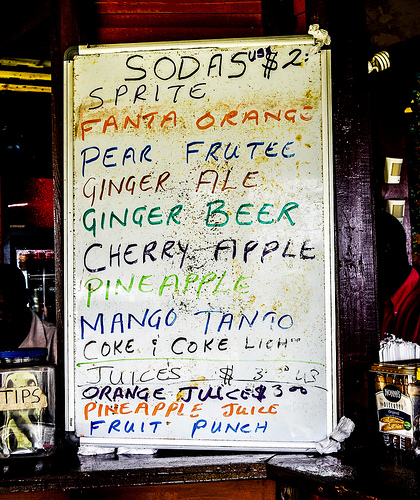 SODAS US$ 2:
SPRITE
FANTA ORANGE
PEAR FRUTEE
GINGER ALE
GINGER BEER
CHERRY APPLE
PINEAPPLE
MANGO TANGO
COKE & COKE LIGHT
JUICES $ 3.00 US
ORANGE JUICE $3 00
PINEAPPLE JUICE
FRUIT PUNCH
TIPS